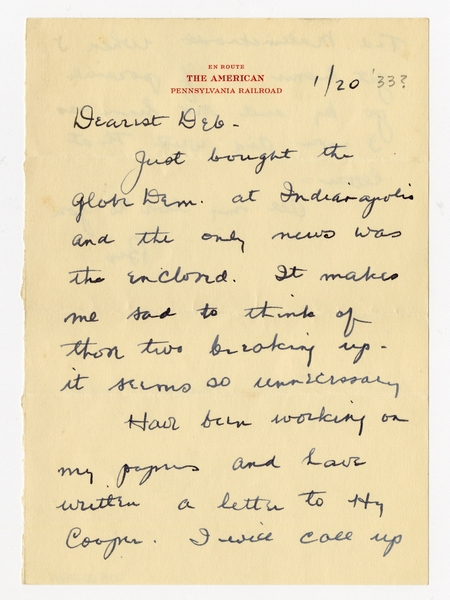 EN ROUTE
THE AMERICAN
PENNSYLVANIA RAILROAD
1/20 '33?
Dearest Deb -
Just bought the
Globe Dem. at Indianapolis
and the only news was
the enclosed. It makes
me sad to think of
those two breaking up -
it seems so unnecessary
Have been working on
my papers and have
written a letter to Hy
Cooper. I will call up